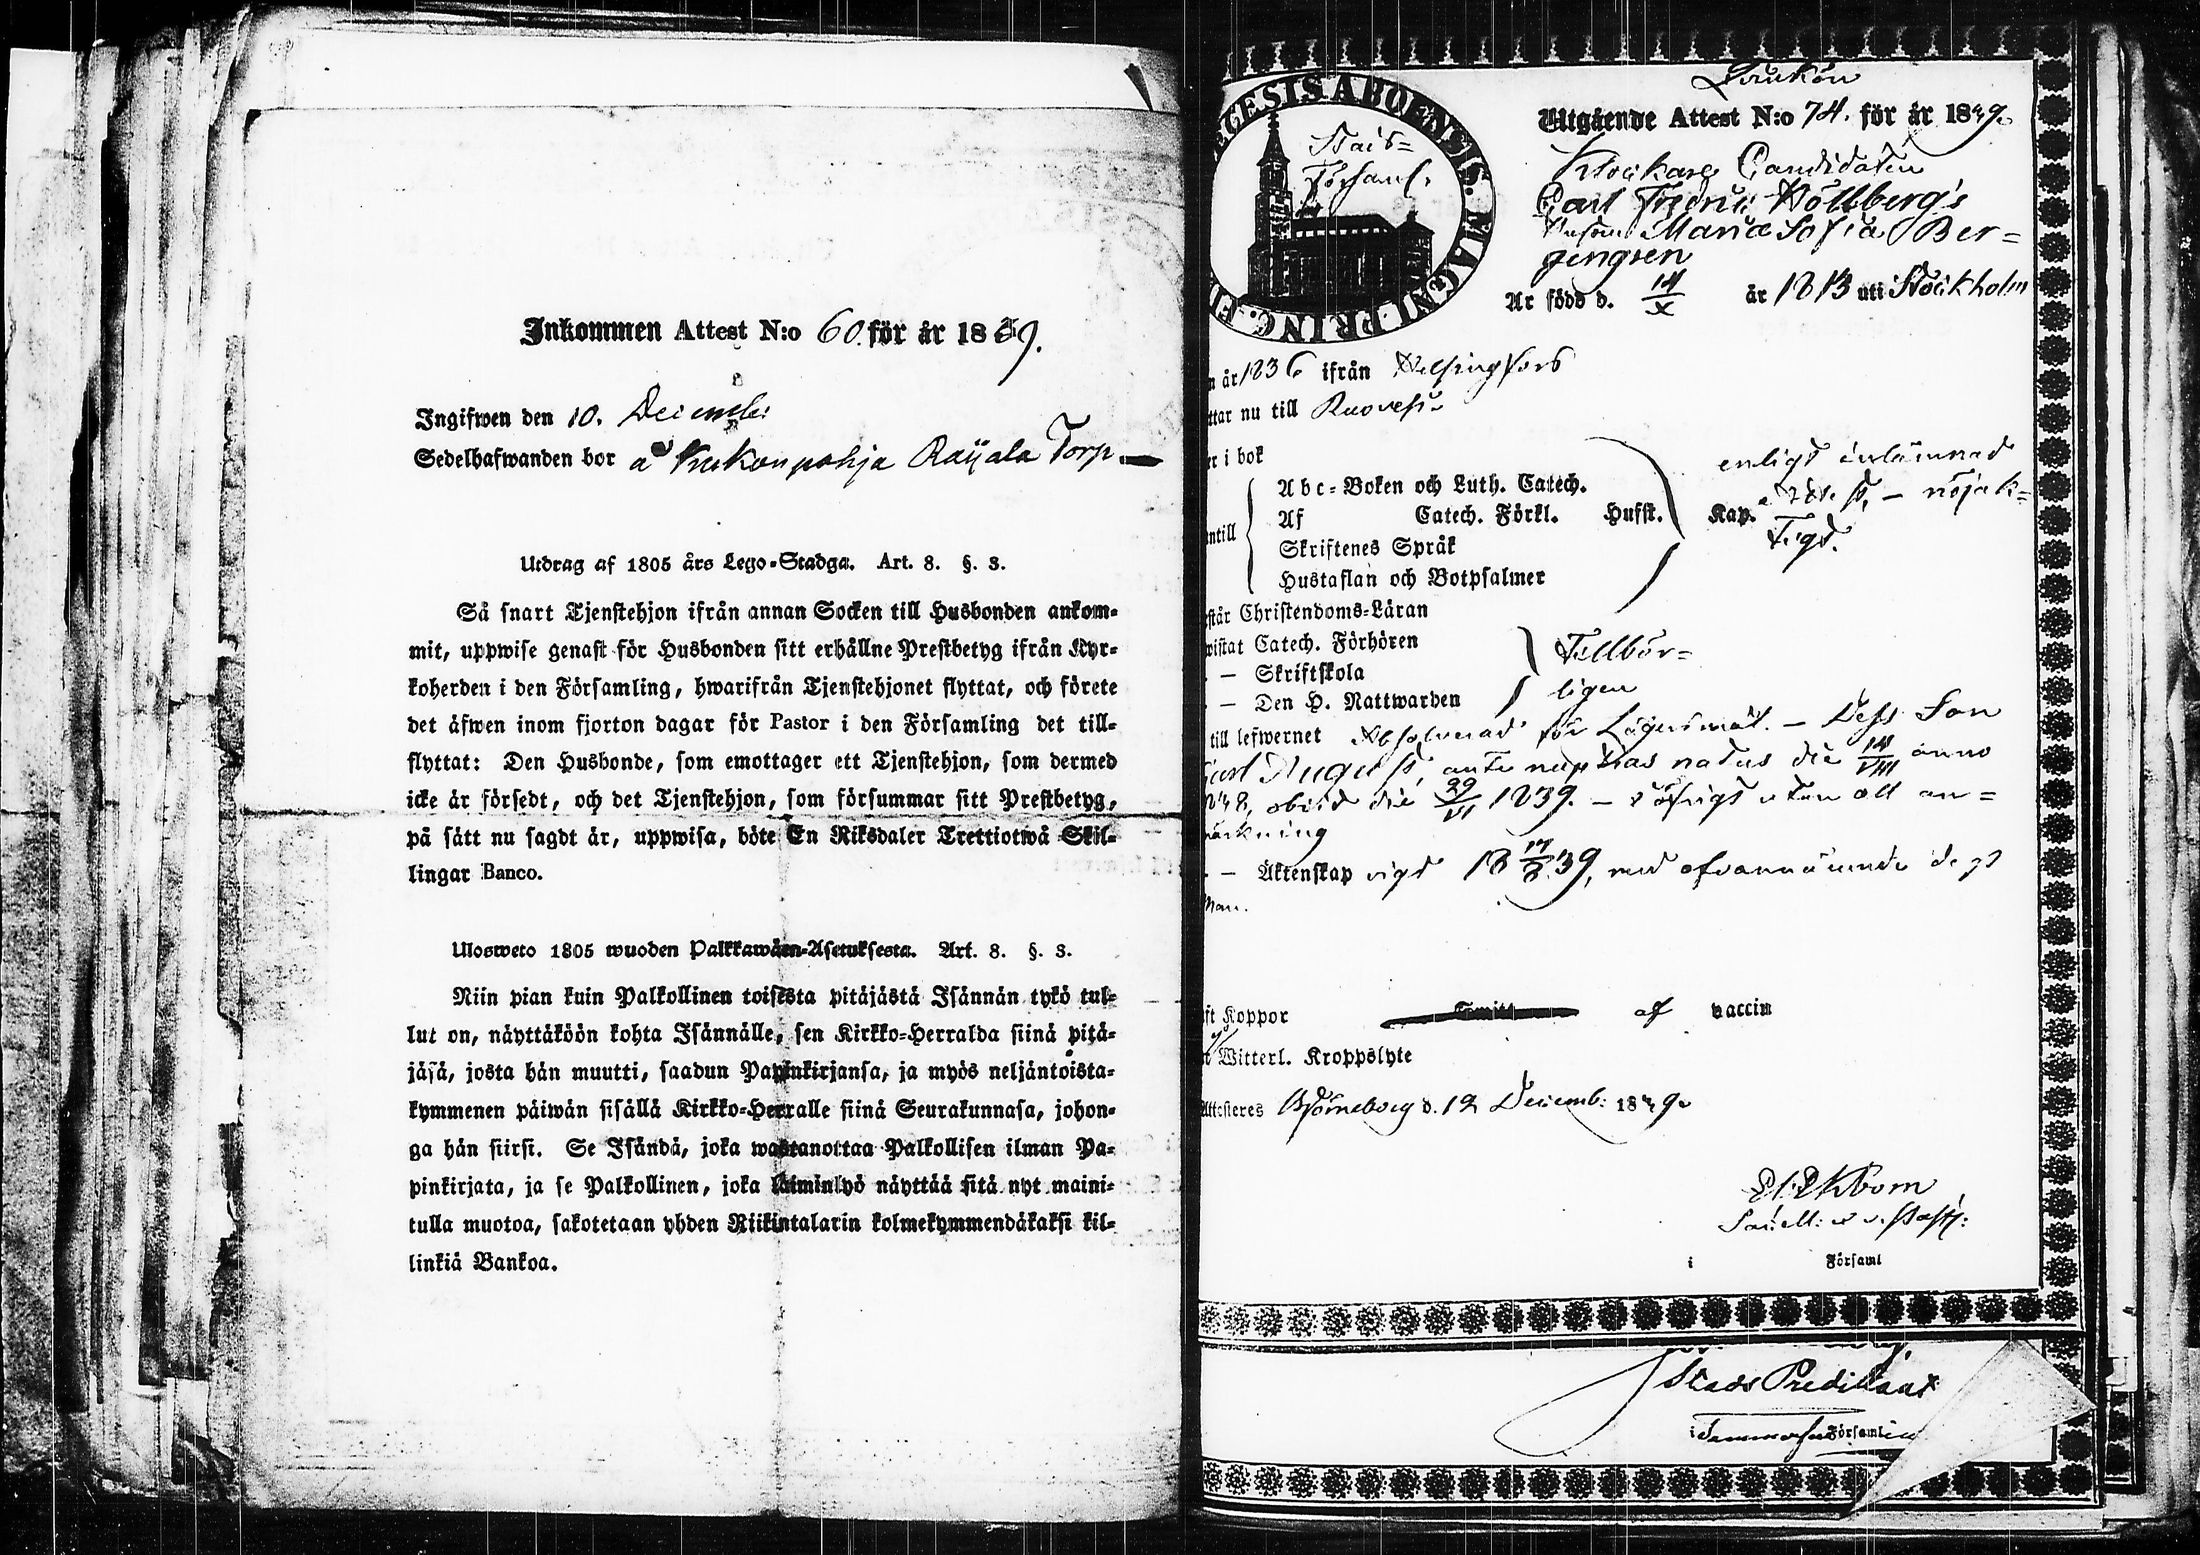 Inkommen Attest N:o 60. för år 1839.
Ingifwen den 10. Decemb:
Sedelhafwanden bor å Kukonpohja Raijala Torp.
Utdrag af 1805 års Lego-Stadga. Art. 8. §. 3.
Så snart Tjenstehjon ifrån annan Socken till Husbonden ankom-
mit, uppwise genast för Husbonden sitt erhållne Prestbetyg ifrån Kyr-
koherden i den Församling, hwarifrån Tjenstehjonet flyttat, och förete
det äfwen inom fjorton dagar för Pastor i den Församling det till-
flyttat: Den Husbonde, som emottager ett Tjenstehjon, som dermed
icke är försedt, och det Tjenstehjon, som försummar sitt Prestbetyg,
på sätt nu sagdt är, uppwisa, böte En Riksdaler Trettiotwå Skil-
lingar Banco.
Ulosweto 1805 wuoden Palkkawäen-Asetuksesta. Art. 8. §. 3.
Niin pian kuin Palkollinen toisesta pitäjästä Isännän tykö tul-
lut on, näyttäköön kohta Isännälle, sen Kirkko-Herralda siinä pitä-
jäsä, josta hän muutti, saadun Papinkirjansa, ja myös neljäntoista-
kymmenen päiwän sisällä Kirkko-Herralle siinä Seurakunnasa, johon-
ga hän siirsi. Se Isändä, joka wastanottaa Palkollisen ilman Pa-
pinkirjata, ja se Palkollinen, joka laiminlyö näyttää sitä nyt maini-
tulla muotoa, sakotetaan yhden Riikintalarin kolmekymmendäkaksi kil-
linkiä Bankoa.
ECESIS ABOENSIS. MAGNI PRINC.
Stads=
Församl.
Utgående Attest N:o 74. för år 1839.
Klockare Candidaten
Carl Fredric Hollberg's
Hustru Maria Sofia Ber=
gengren
Är född d. 14/X år 1813 uti Stockholm
n år 1836 ifrån Helsingfors
ttar nu till Ruovesi
r i bok
Abc-Boken och Luth. Catech.
Af Catech. Förkl. Hufst. Kap.
Skriftenes Språk
Hustaflan och Botpsalmer
enligt inlämnad
attest, – nöjak=
tigt.
ntill
står Christendoms-Läran
wistat Catech. Förhören
– Skriftskola
– Den H. Nattwarden
Tillbör=
ligen
till lefwernet Absolverad för Lägersmål. – Dess Son
Carl August, ante nuptias natus die 14/VIII anno
obiit die 29/VI 1839. – öfrigt utan all an=
märkning
– Äktenskap vigd 18 17/8 39, med ofvannämnde dess
Man.
ft Koppor af vaccin
Witterl. Kroppslyte
Attesteres Björneborg d. 12 Decemb: 1839.
Ekbom
i Församl
Stads Predikant
i Tammerfors Församling